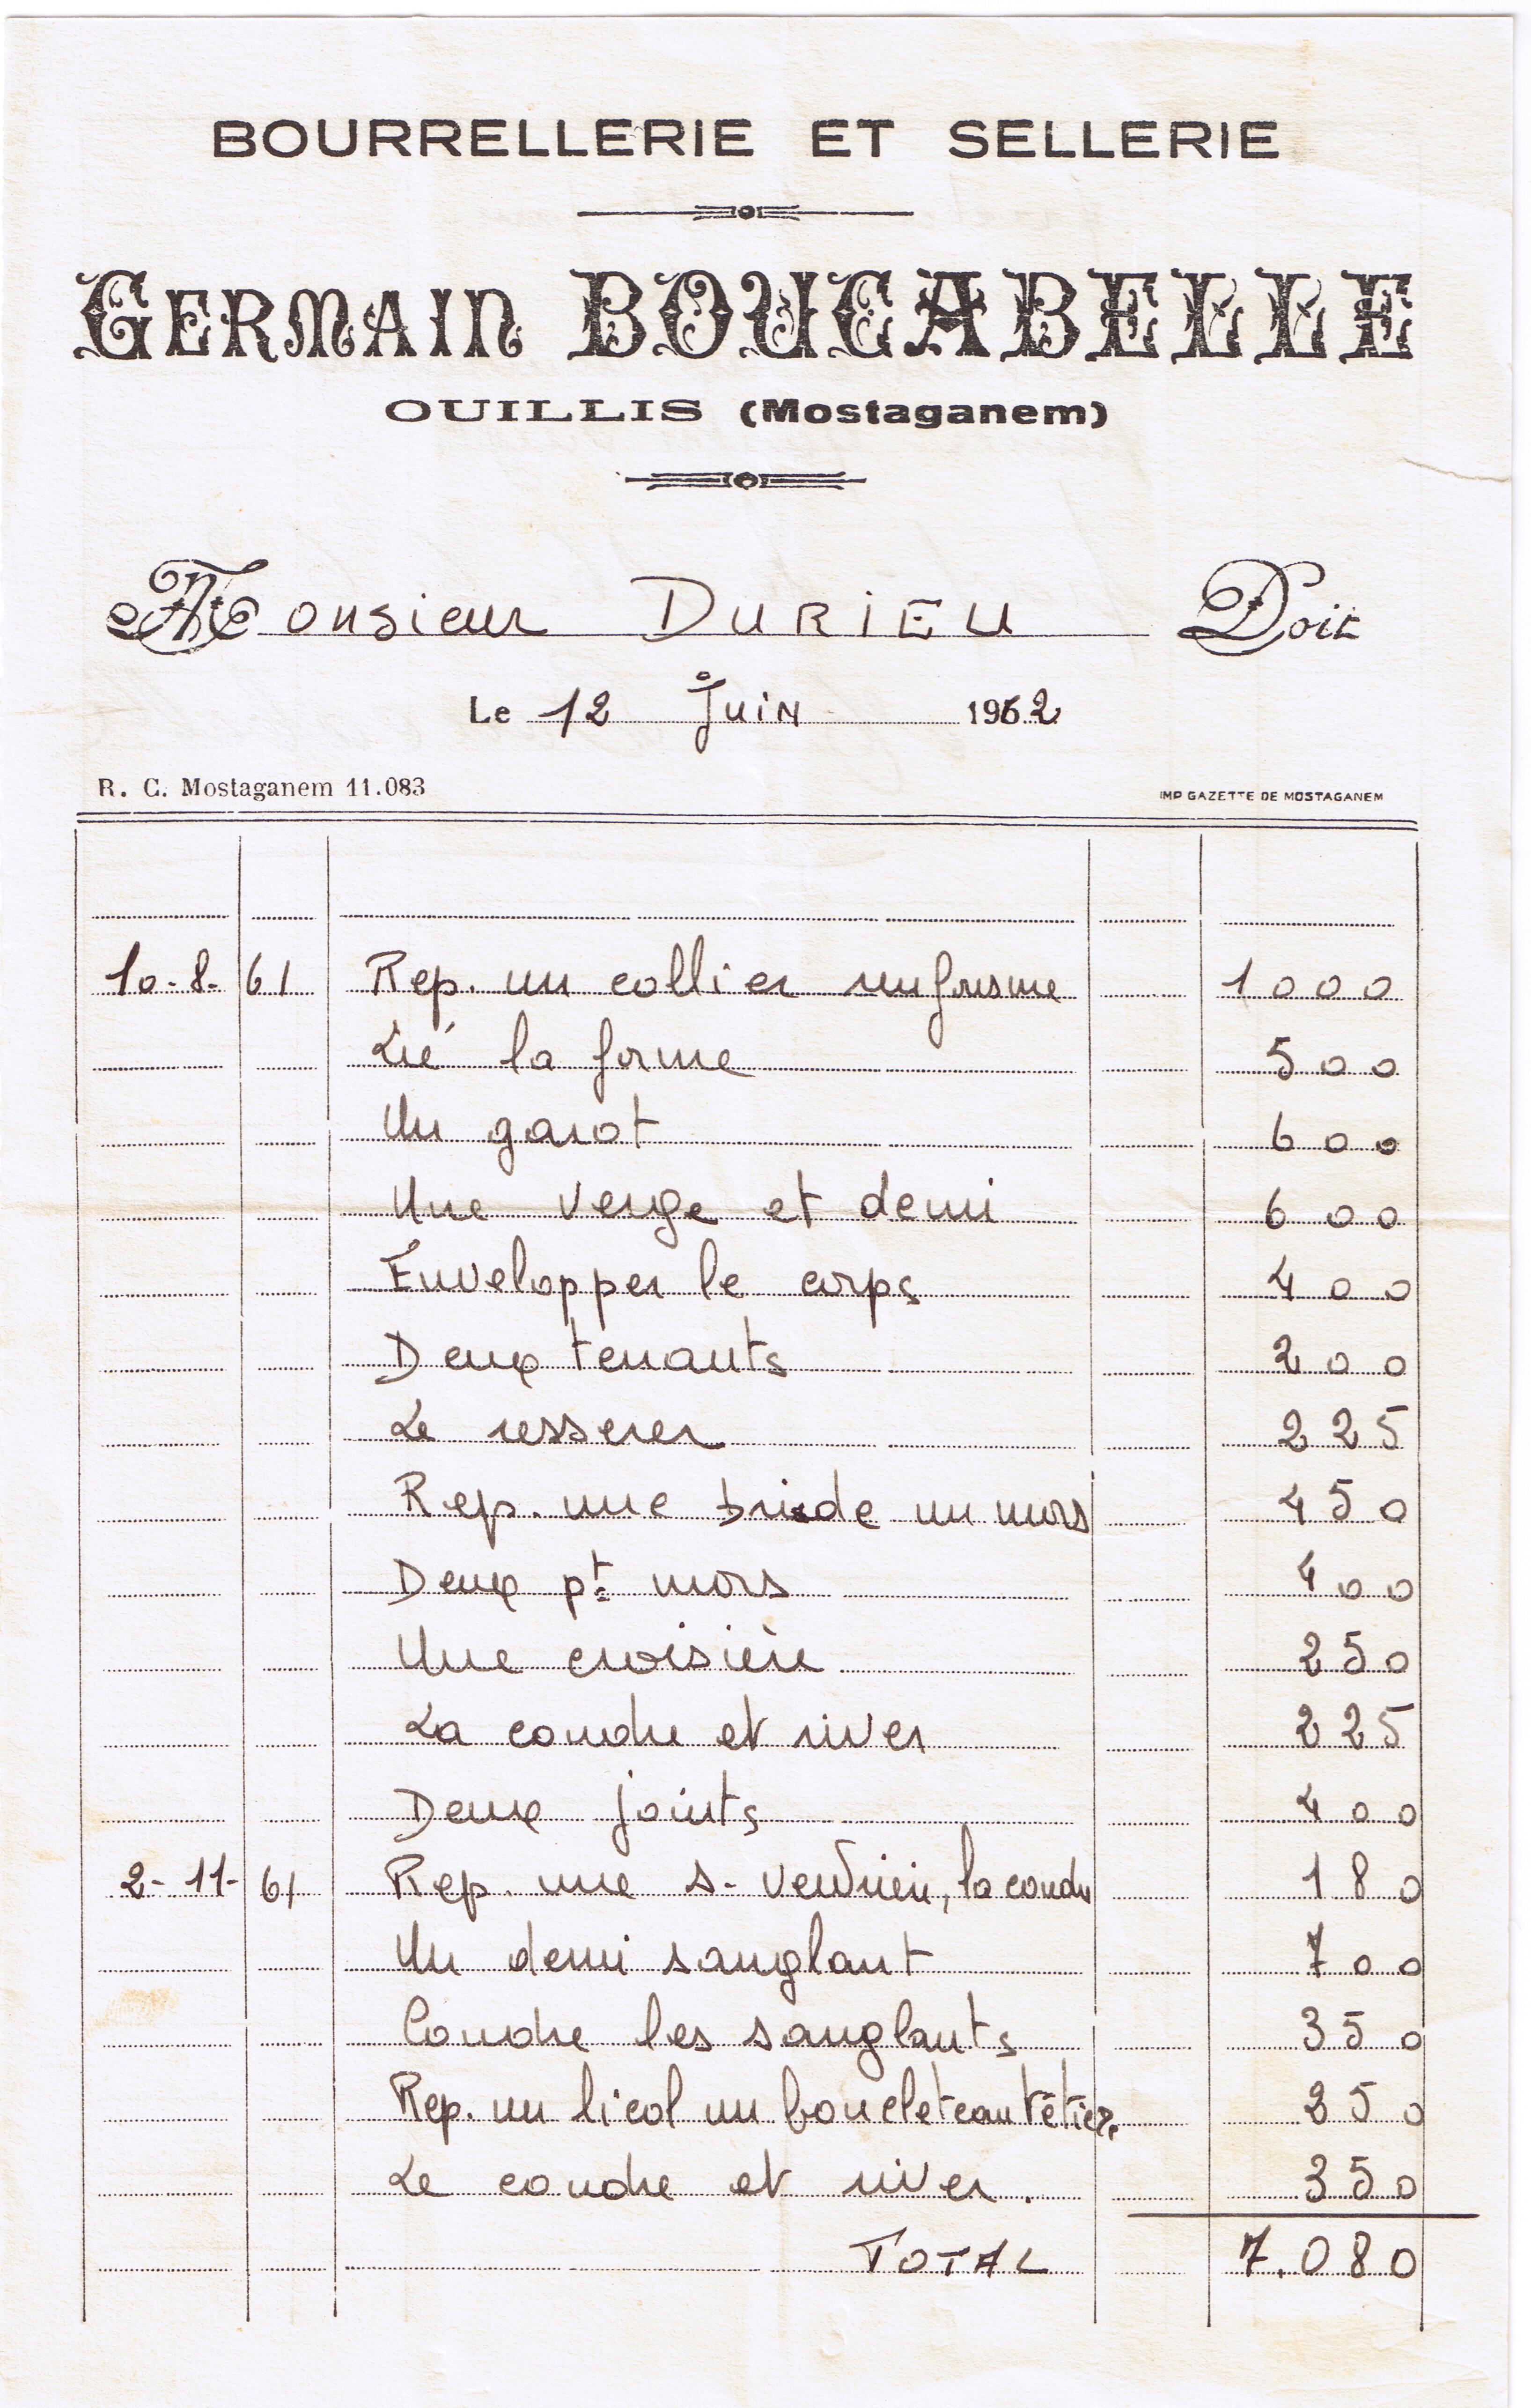 BOURRELLERIE ET SELLERIE
GERMAIN BOUCABELLE
OUILLIS (Mostaganem)
Monsieur DURIEU Doit
Le 12 Juin 1962
R. C. Mostaganem 11.083 IMP GAZETTE DE MOSTAGANEM
10-8-61 Rep. un collier un 1000
Lié la forme 500
Un garot 600
Une verge et demi 600
Envelopper le corps 400
Deux tenants 200
Le resserer 225
Rep. une bride un mors 450
Deux pt mors 400
Une croisière 250
La coudre et river 225
Deux joints 400
2-11-61 Rep. une s-ventrière, la coudre 180
Un demi sanglant 700
Coudre les sanglants 350
Rep. un licol un boucleteau têtière 250
Le coudre et river. 350
TOTAL 7.080